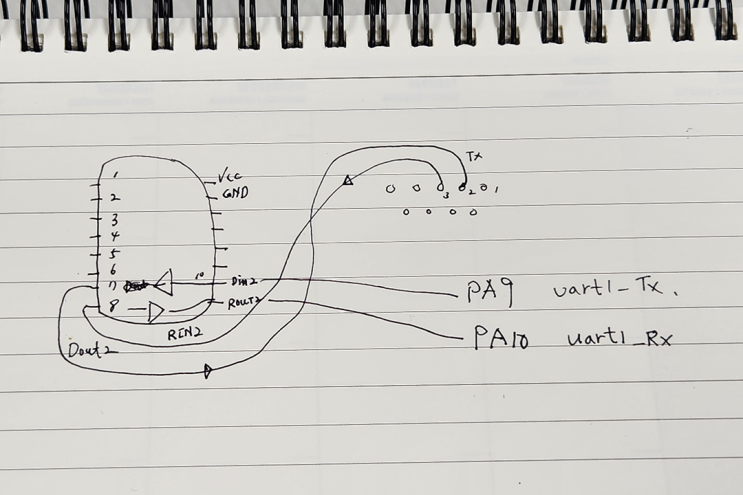 1 Vcc
2 GND
3
4
5
6 10
7 Din2 PA9 uart1_Tx.
8 ROUT2 PA10 uart1_Rx
RIN2
Dout2
Tx
3 2 1